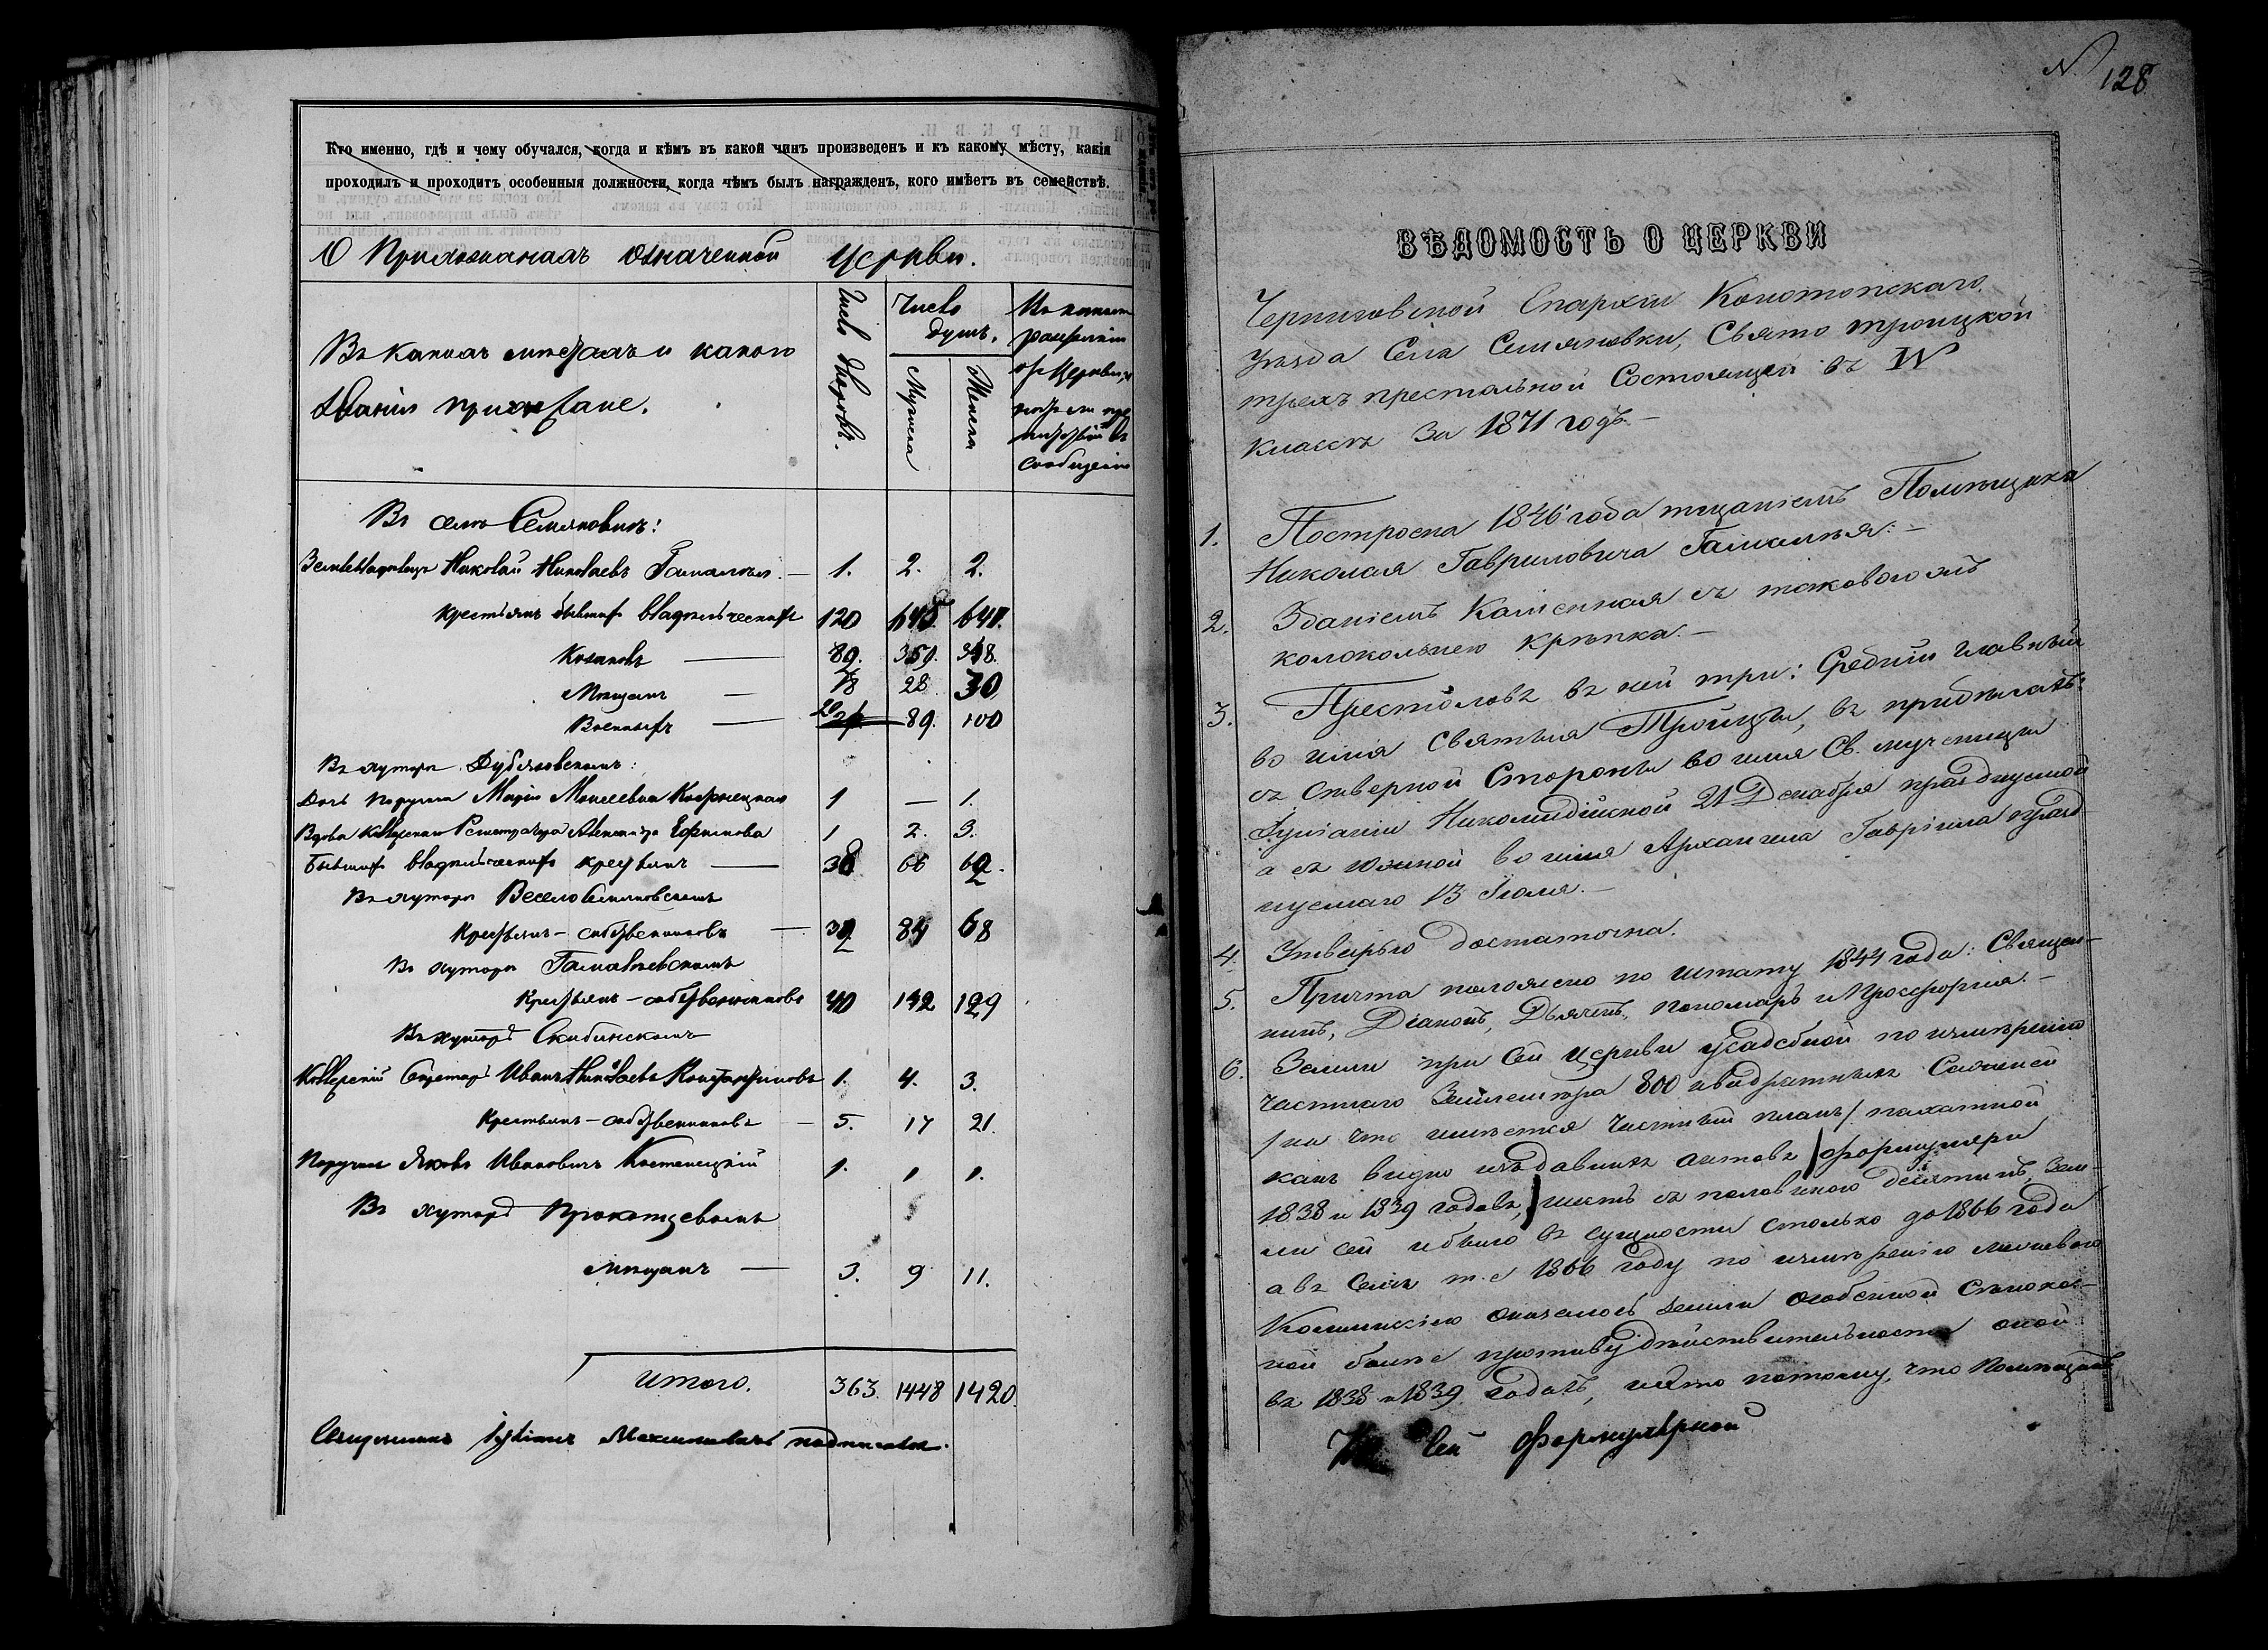 Кто именно, гдѣ и чему обучался, когда и кѣмъ въ какой чинъ произведенъ и къ какому мѣсту, какія
проходилъ и проходитъ особенныя должности, когда чѣмъ былъ награжденъ, кого имѣетъ въ семействѣ.
О Прихожанахъ означенной церкви.
Въ какихъ мѣстахъ и какого
званія прихожане.
Число дворовъ.
Число душъ.
Мужеска
Женска
Въ селѣ Семяновкѣ:
Землевладѣлецъ Николай Николаевъ Гамалѣя. — 1. 2. 2.
Крестьянъ бывшихъ владѣльческихъ 120 645. 641.
Козаковъ — 89. 359. 348.
Мѣщанъ — 18 28 30
Военныхъ — 20 89. 100
Въ хуторѣ
Дочь поручика Марія Моисеевна 1 — 1.
Вдова 1 2. 3.
Бывшихъ владѣльческихъ крестьянъ — 38 66 62.
Въ хуторѣ Весело Семяновскомъ
Крестьянъ-собственниковъ — 32 84 68
Въ хуторѣ Гамалѣевскомъ
Крестьянъ-собственниковъ 40 142 129
Въ хуторѣ Скибинскомъ
Секретарь Иванъ Николаевъ Константиновъ 1. 4. 3.
Крестьянъ-собственниковъ — 5. 17 21.
Поручикъ Яковъ Ивановичъ Костенецкій 1. 1 1.
Въ хуторѣ
Мѣщанъ — 3. 9 11.
Итого. 363. 1448 1420.
Священникъ
N. 128
ВѢДОМОСТЬ О ЦЕРКВИ
Черниговской Епархіи Конотопскаго
уѣзда Села Семяновки, Свято Троицкой
трехъ престольной Состоящей въ IV
классѣ За 1871 годъ.—
1. Построена 1846 года тщаніемъ Помѣщика
Николая Гавриловича Гамалѣя.—
2. Зданіемъ Каменная съ таковою жъ
колокольнею крѣпка.—
3. Престоловъ въ ней три: Средній главный
во имя Святыя Тройцы, въ придѣлахъ:
съ Сѣверной Стороны во имя Св. мученицы
Іуліаніи Никомидійской 21 Декабря празднуемой
а съ южной во имя Архангела Гавріила празд
нуемаго 13 Іюля.—
4. Утварью достаточна.
5. Причта положено по штату 1844 года: Священ—
никъ, Діаконъ, Дьячекъ, пономарь и Просфорня.—
6. Земли при сей церкви усадебной по измѣренію
частнаго Землемѣра 800 квадратныхъ Саженей
/на что имѣется частный планъ/ пахатной
какъ видно изъ давнихъ актовъ /формуляры
1838 и 1839 годовъ,/ шесть съ половиною десятинъ, Зем—
ли сей и было въ сущности столько до 1866 года
а въ Семъ т. е 1866 году по измѣренію межевою
Коммисіею оказалось земли особенной Сѣнокос—
ной болѣе противу дѣйствительности оной
въ 1838 и 1839 годахъ, и это потому, что Помѣщикъ
Къ сей Формулярной